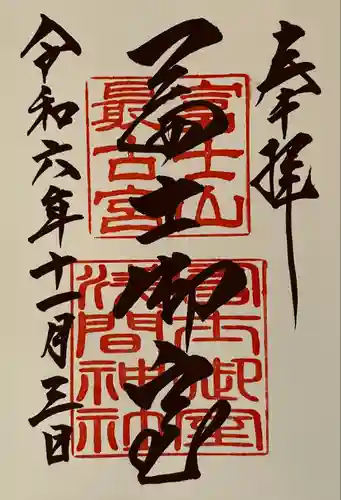 奉拝
富士山
最古宮
冨士御室
浅間神社
冨士御室
令和六年十一月三日